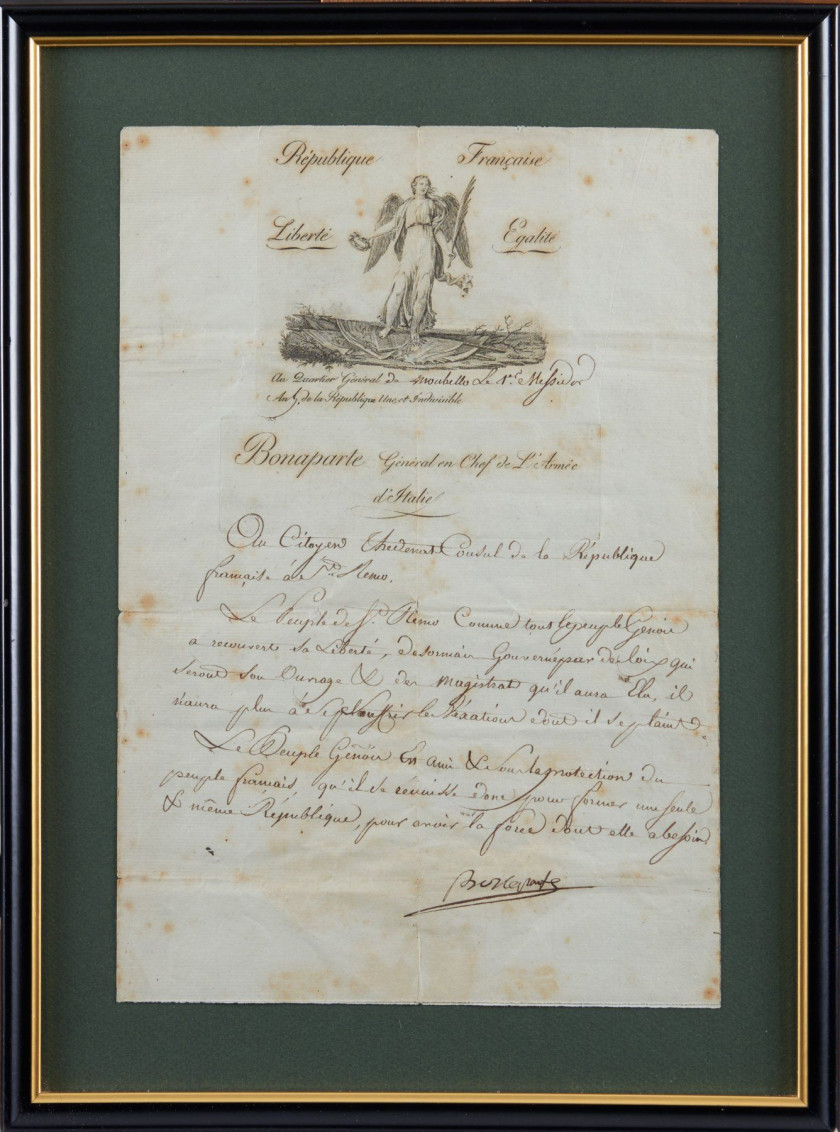 République Française
Liberté Egalité
Au Quartier Général de Monbello Le 1er Messidor
An 5. de la République Une et Indivisible
Bonaparte Général en Chef de L'Armée
d'Italie
Au Citoyen Consul de la République
française à St. Remo.
Le Peuple de St. Remo Comme tout le peuple Génois
a recouvert sa Liberté, désormais Gouverné par de loix qui
seront son Ouvrage & des magistrat qu'il aura Elu, il
n'aura plus à les Vexations dont il se plaint.
Le Peuple Génois Est ami & sous la protection du
peuple français, qu'il se réunisse donc pour former une seule
& même République, pour avoir la force dont elle a besoin.
Bonaparte